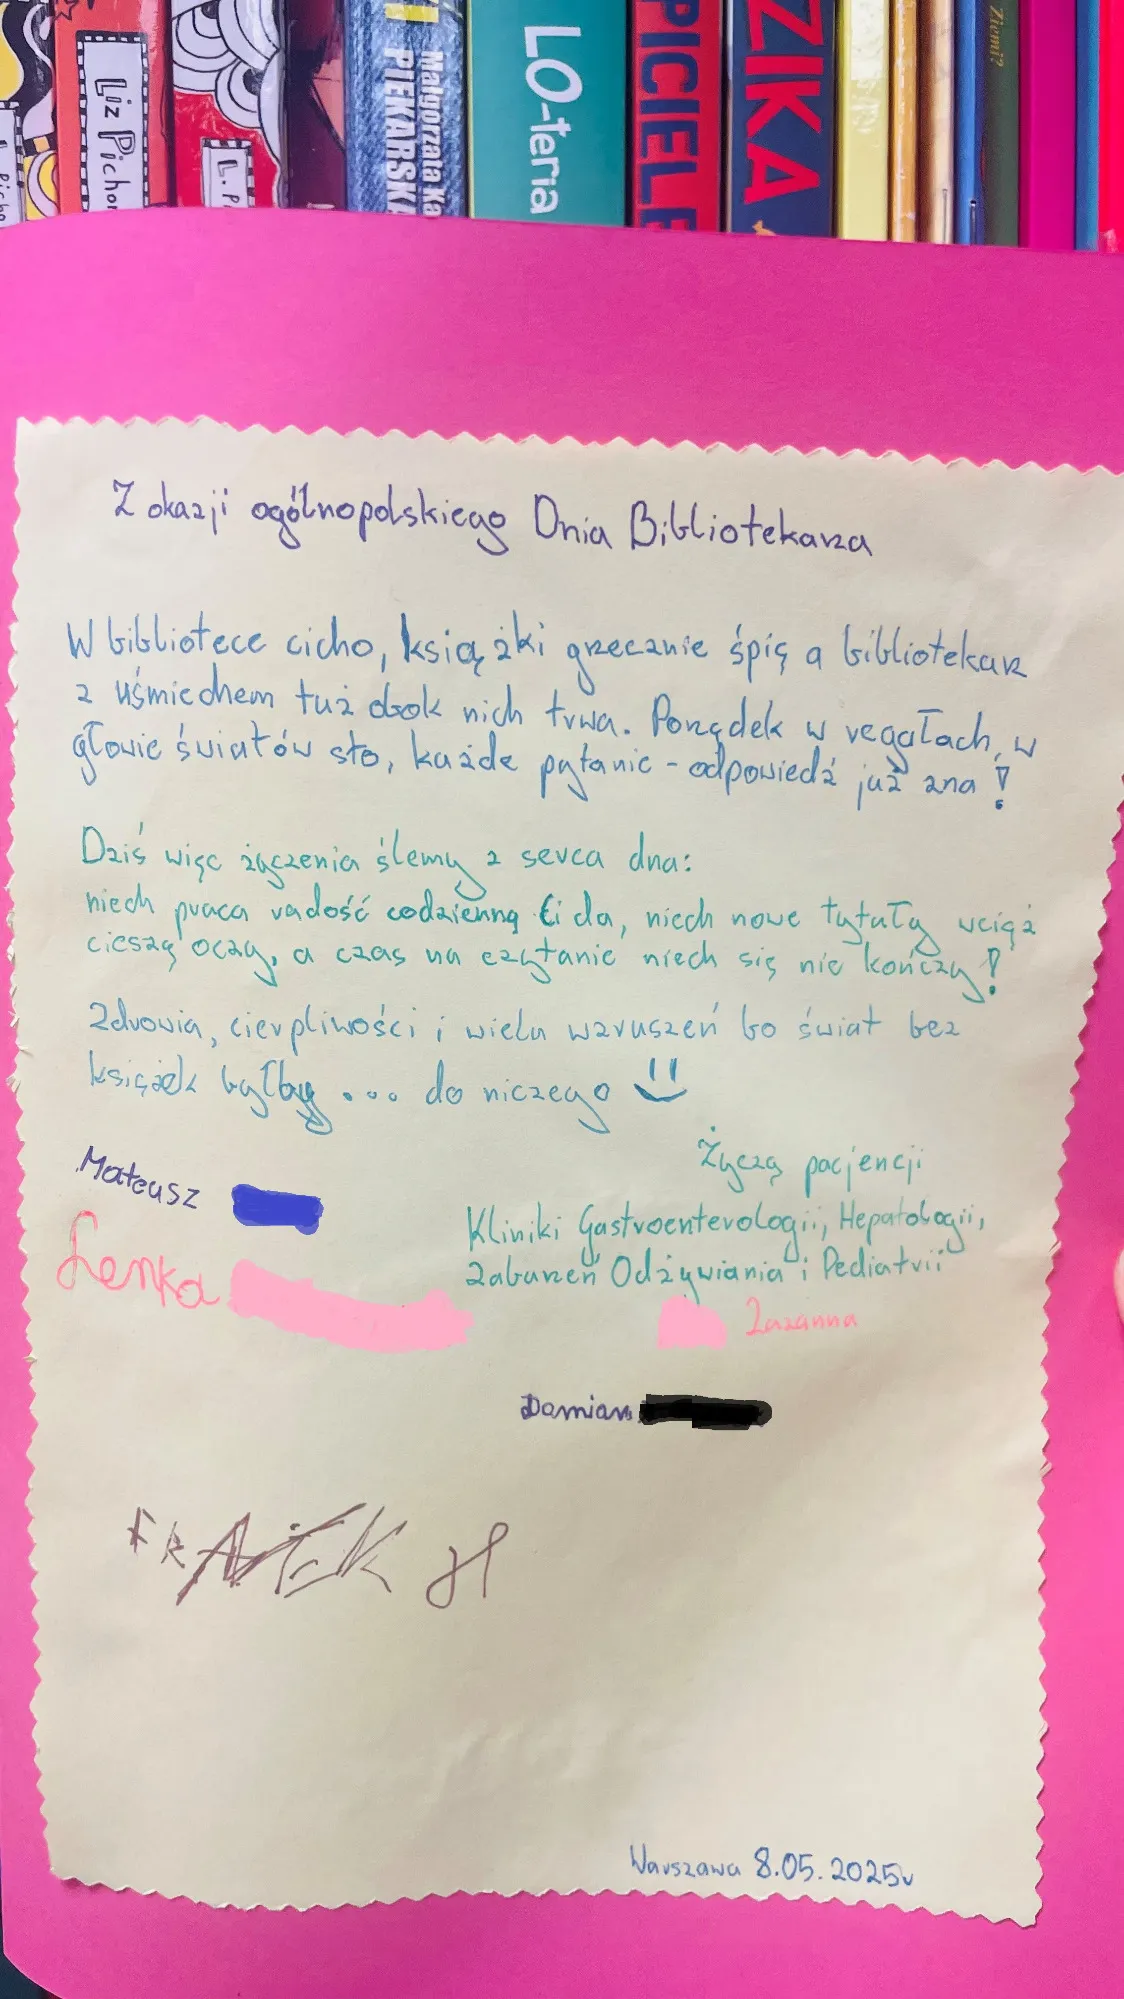 Liz Pichon
L. Pi
Małgorzata Ka
PIEKARSKA
LO-teria
PICIEL
ZIKA
Ziemi?
Z okazji ogólnopolskiego Dnia Bibliotekarza
W bibliotece cicho, książki grzecznie śpią a bibliotekarz
z uśmiechem tuż obok nich trwa. Porządek w regałach, w
głowie światów sto, każde pytanie - odpowiedź już zna!
Dziś więc życzenia ślemy z serca dna:
niech praca radość codzienną Ci da, niech nowe tytuły wciąż
cieszą oczy, a czas na czytanie niech się nie kończy!
Zdrowia, cierpliwości i wielu wzruszeń bo świat bez
książek byłby ... do niczego
Życzą pacjencji
Kliniki Gastroenterologii, Hepatologii,
Zaburzeń Odżywiania i Pediatrii
Mateusz
Lenka
Zuzanna
Damian
FRANEK H
Warszawa 8.05.2025r